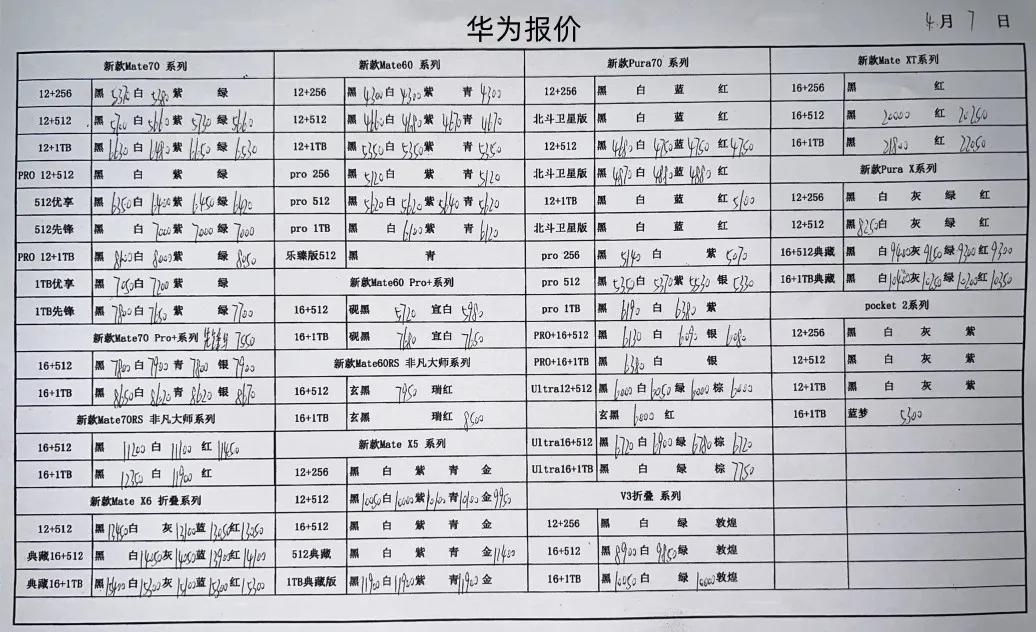 华为报价
4月7日
新款Mate70 系列
12+256 黑 白 5380 紫 绿
12+512 黑 5700 白 5660 紫 5730 绿 5660
12+1TB 黑 6630 白 6480 紫 6650 绿 6530
PRO 12+512 黑 白 紫 绿
512优享 黑 6350 白 6400 紫 6450 绿
512先锋 黑 白 7000 紫 7000 绿 7000
PRO 12+1TB 黑 8100 白 8000 紫 绿 8050
1TB优享 黑 7050 白 7200 紫 绿
1TB先锋 黑 7800 白 7650 紫 绿 7700
新款Mate70 Pro+系列 7550
16+512 黑 7800 白 7900 青 7800 银 7900
16+1TB 黑 8650 白 8620 青 8620 银 8670
新款Mate70RS 非凡大师系列
16+512 黑 11200 白 11100 红 11450
16+1TB 黑 12350 白 11900 红
新款Mate X6 折叠系列
12+512 黑 13450 白 灰 13100 蓝 13050 红 13050
典藏16+512 黑 白 14250 灰 14050 蓝 13900 红 14100
典藏16+1TB 黑 15400 白 15300 灰 15100 蓝 15300 红 15300
新款Mate60 系列
12+256 黑 4300 白 4300 紫 青 4300
12+512 黑 4660 白 4680 紫 4670 青 4670
12+1TB 黑 5350 白 5350 紫 青 5350
pro 256 黑 5120 白 紫 青 5120
pro 512 黑 5620 白 5620 紫 5640 青 5620
pro 1TB 黑 白 6100 紫 青 6120
乐臻版512 黑 青
新款Mate60 Pro+系列
16+512 砚黑 5720 宣白 5980
16+1TB 砚黑 7680 宣白 7650
新款Mate60RS 非凡大师系列
16+512 玄黑 7950 瑞红
16+1TB 玄黑 瑞红 8500
新款Mate X5 系列
12+256 黑 白 紫 青 金
12+512 黑 10050 白 10000 紫 10100 青 10100 金 9950
16+512 黑 白 紫 青 金
512典藏 黑 白 紫 青 金 11400
1TB典藏版 黑 11900 白 11900 紫 青 11900 金
新款Pura70 系列
12+256 黑 白 蓝 红
北斗卫星版 黑 白 蓝 红
12+512 黑 4680 白 4750 蓝 4750 红 4750
北斗卫星版 黑 4870 白 4880 蓝 4880 红
12+1TB 黑 白 蓝 红 5100
北斗卫星版 黑 白 蓝 红
pro 256 黑 5140 白 紫 5070
pro 512 黑 5350 白 5270 紫 5530 银 5330
pro 1TB 黑 6190 白 6380 紫
PRO+16+512 黑 6130 白 6090 银 6080
PRO+16+1TB 黑 6380 白 银
Ultra12+512 黑 6000 白 6050 绿 6000 棕 6000
玄黑 6000 红
Ultra16+512 黑 6720 白 6900 绿 6780 棕 6720
Ultra16+1TB 黑 白 绿 棕 7750
V3折叠 系列
12+256 黑 白 绿 敦煌
16+512 黑 8900 白 9850 绿 敦煌
16+1TB 黑 10050 白 绿 10000 敦煌
新款Mate XT系列
16+256 黑 红
16+512 黑 20000 红 20250
16+1TB 黑 21800 红 22050
新款Pura X系列
12+256 黑 白 灰 绿 红
12+512 黑 8250 白 灰 绿 红
16+512典藏 黑 白 9400 灰 9150 绿 9300 红 9300
16+1TB典藏 黑 白 10400 灰 10250 绿 10200 红 10350
pocket 2系列
12+256 黑 白 灰 紫
12+512 黑 白 灰 紫
12+1TB 黑 白 灰 紫
16+1TB 蓝梦 5300